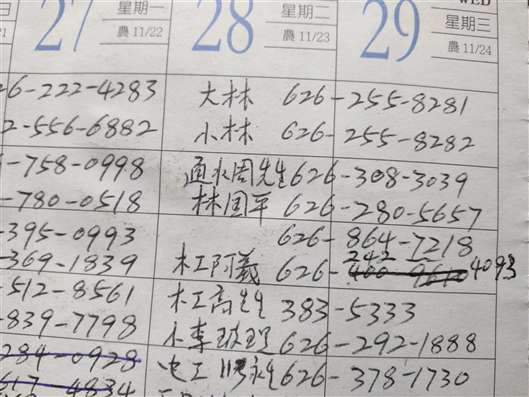 27 星期一 28 星期二 29 星期三
農11/22 農11/23 農11/24
6-222-4283 大林 626-255-8281
2-556-6882 小林 626-255-8282
-758-0998 通水周先生 626-308-3039
-780-0518 林国平 626-280-5657
-395-0993 626-864-7218
-369-1839 木工阿義 626-242-4093
-512-8561 木工高生 383-5333
-839-7798 小李玻璃 626-292-1888
284-0928 电工 626-378-1730
617-4834